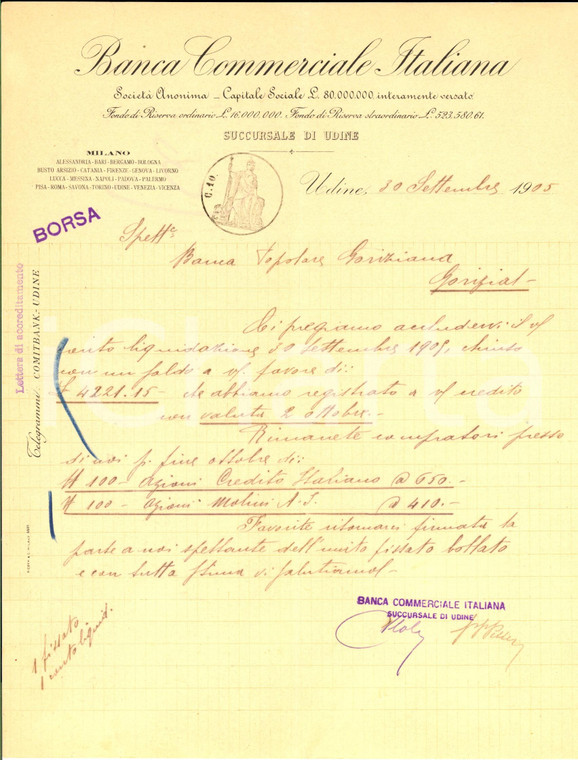 Banca Commerciale Italiana
Società Anonima – Capitale Sociale L. 80.000.000 interamente versato
Fondo di Riserva ordinario L. 16.000.000. Fondo di Riserva straordinario L. 523.580.61.
SUCCURSALE DI UDINE
MILANO
ALESSANDRIA - BARI - BERGAMO - BOLOGNA
BUSTO ARSIZIO - CATANIA - FIRENZE - GENOVA - LIVORNO
LUCCA - MESSINA - NAPOLI - PADOVA - PALERMO
PISA - ROMA - SAVONA - TORINO - UDINE - VENEZIA - VICENZA
C. 10
Udine, 30 Settembre 1905
BORSA
Spett.e
Banca Popolare Goriziana
Gorizia –
Lettera di accreditamento
Telegrammi: COMITBANK - UDINE
Ci pregiamo accludervi il v/
conto liquidazione 30 Settembre 1905, chiuso
con un saldo a v/ favore di:
£ 4221.15 che abbiamo registrato a v/ credito
con valuta 2 Ottobre. –
Rimanete compratori presso
di noi p/ fine ottobre di:
N 100 – Azioni Credito Italiano a 650. –
N 100 – Azioni Molini A. I. a 410. –
Favorite ritornarci firmata la
parte a noi spettante dell'unito fissato bollato
e con tutta stima vi salutiamo. –
BANCA COMMERCIALE ITALIANA
SUCCURSALE DI UDINE
1 fissato
1 conto liquid.